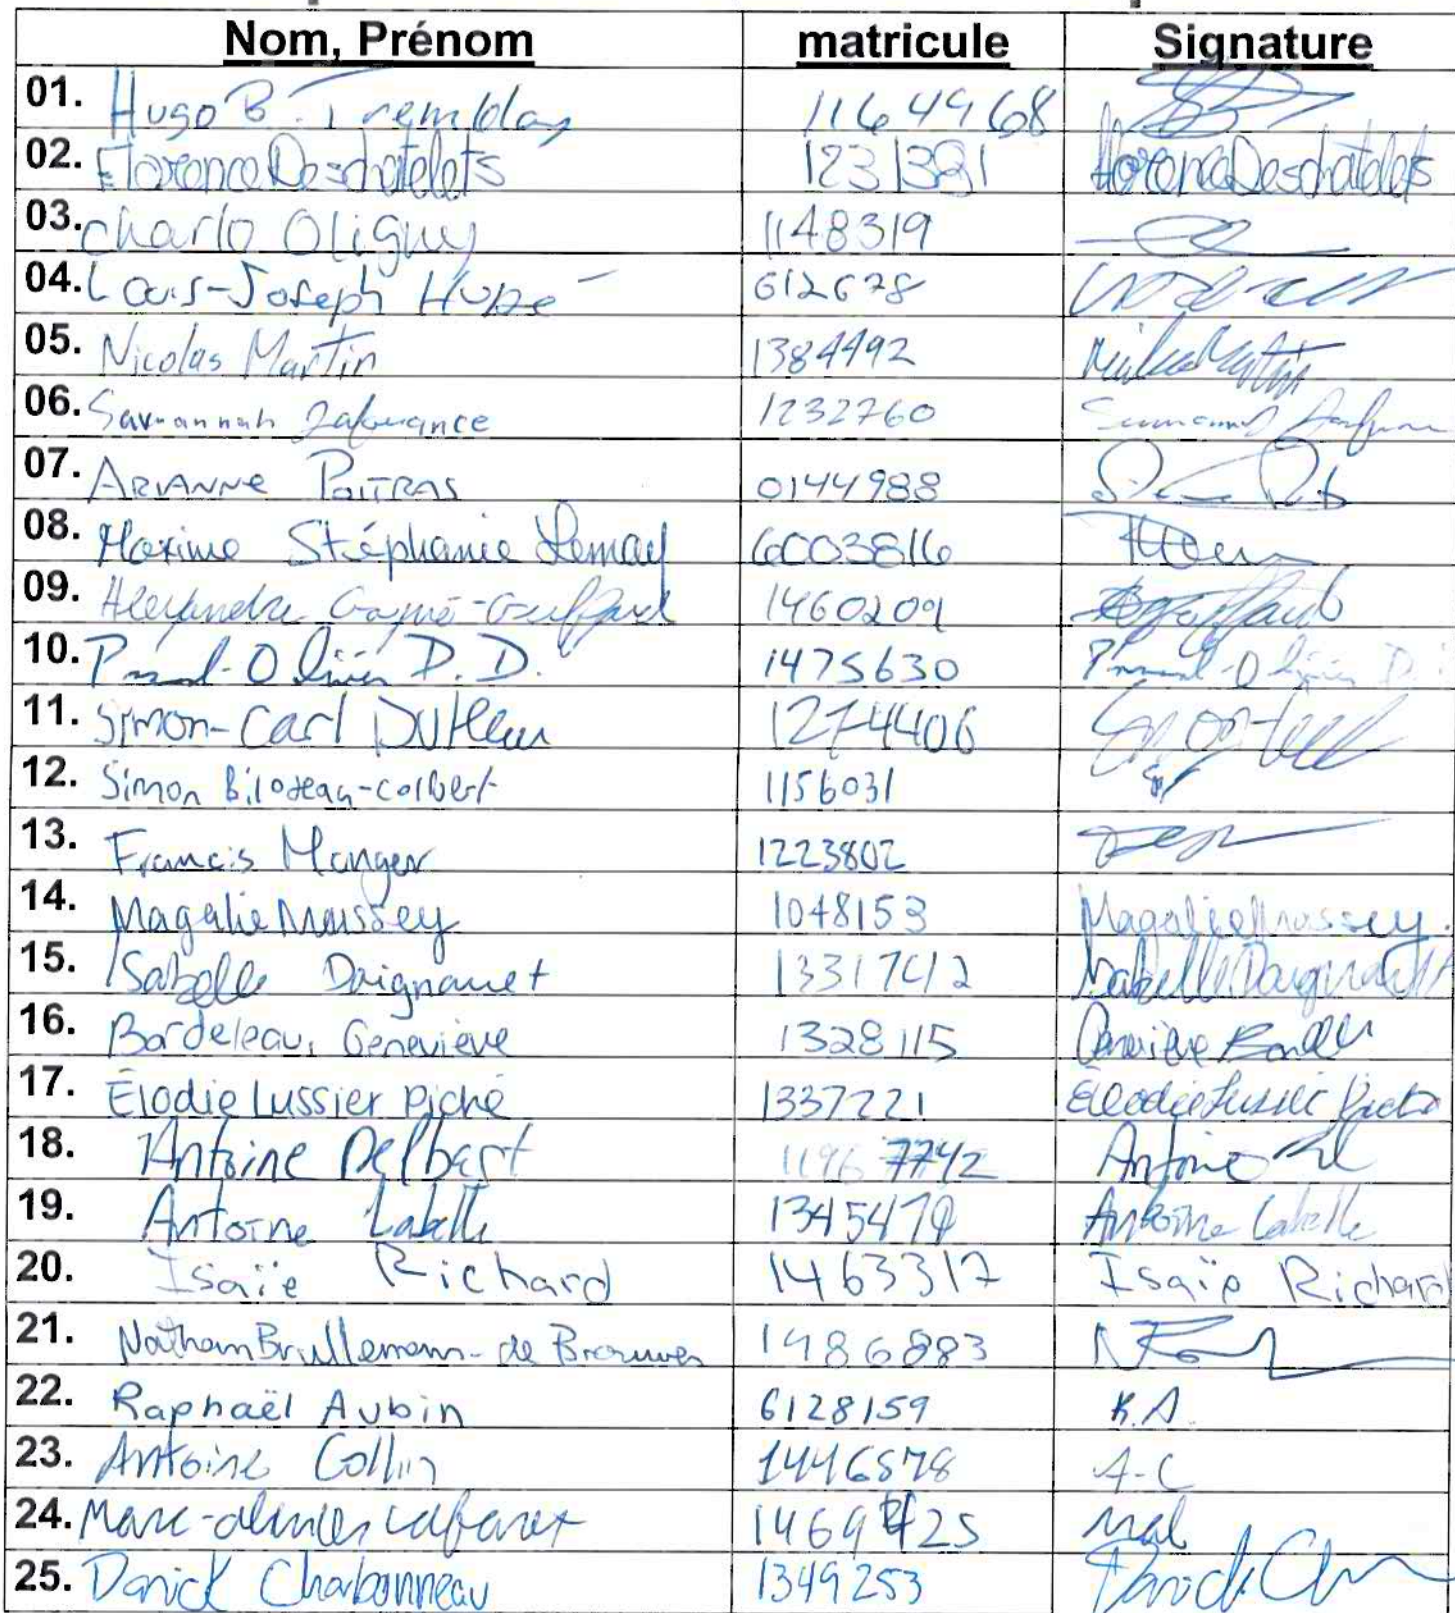 Nom, Prénom matricule Signature
01. Hugo B. Tremblay 1164968
02. Florence Deschatelets 1231381 Florence Deschatelets
03. Charlo Oligny 1148319
04. Louis-Joseph Hupé 612678
05. Nicolas Martin 1384492
06. Savannah Lafrance 1232760
07. Arianne Poitras 0144988
08. Maxime Stéphanie Lemay 6003816
09. Alexandre 1460209
10. Olivier D. D. 1475630
11. Simon-Carl 1274406
12. Simon Bilodeau-Colbert 1156031
13. Francis Monger 1223802
14. Magalie Massey 1048153 Magalie Massey
15. Isabelle Daignault Isabelle Daignault
16. Bordeleau, Geneviève 1328115 Geneviève
17. Élodie Lussier Piché 1337221 Élodie Lussier Piché
18. Antoine Delbart 11967742 Antoine
19. Antoine Labelle Antoine Labelle
20. Isaïe Richard 1463317 Isaïe Richard
21. Nathan 1486883
22. Raphaël Aubin 6128159 R.A.
23. Antoine Collin 1446578 A-C
24. mal
25. Danick Charbonneau 1349253 Danick